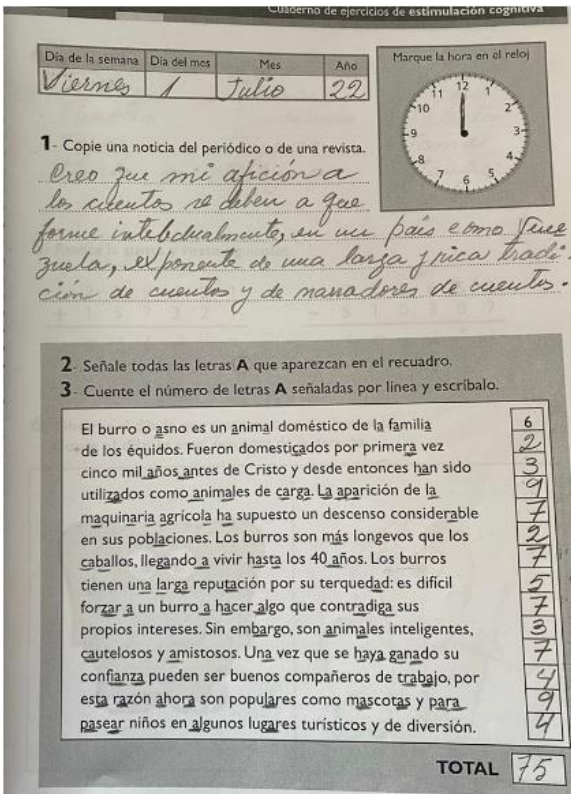 Cuaderno de ejercicios de estimulación cognitiva
Día de la semana Día del mes Mes Año
Viernes 1 Julio 22
Marque la hora en el reloj
12
11 1
10 2
9 3
8 4
7 5
6
1- Copie una noticia del periódico o de una revista.
Creo que mi afición a
los cuentos se deben a que
forme intelectualmente, en un país como Vene
zuela, exponente de una larga y rica tradi-
ción de cuentos y de narradores de cuentos.
2- Señale todas las letras A que aparezcan en el recuadro.
3- Cuente el número de letras A señaladas por línea y escríbalo.
El burro o asno es un animal doméstico de la familia 6
de los équidos. Fueron domesticados por primera vez 2
cinco mil años antes de Cristo y desde entonces han sido 3
utilizados como animales de carga. La aparición de la 9
maquinaria agrícola ha supuesto un descenso considerable 7
en sus poblaciones. Los burros son más longevos que los 2
caballos, llegando a vivir hasta los 40 años. Los burros 7
tienen una larga reputación por su terquedad: es difícil 5
forzar a un burro a hacer algo que contradiga sus 7
propios intereses. Sin embargo, son animales inteligentes, 3
cautelosos y amistosos. Una vez que se haya ganado su 7
confianza pueden ser buenos compañeros de trabajo, por 4
esta razón ahora son populares como mascotas y para 9
pasear niños en algunos lugares turísticos y de diversión. 4
TOTAL 75